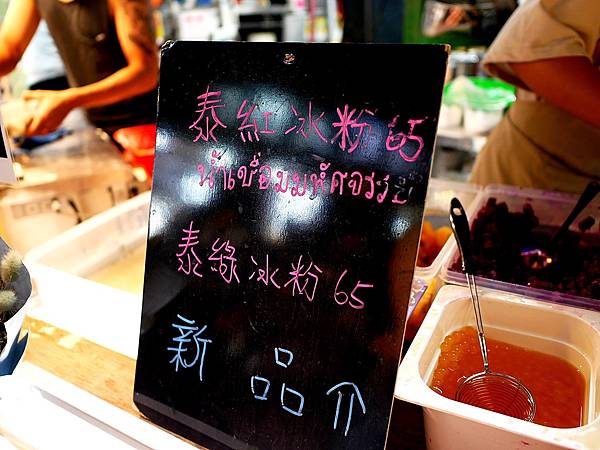 泰紅冰粉 65
น้ำเชื่อมมหัศจรรย์
泰綠冰粉 65
新品介